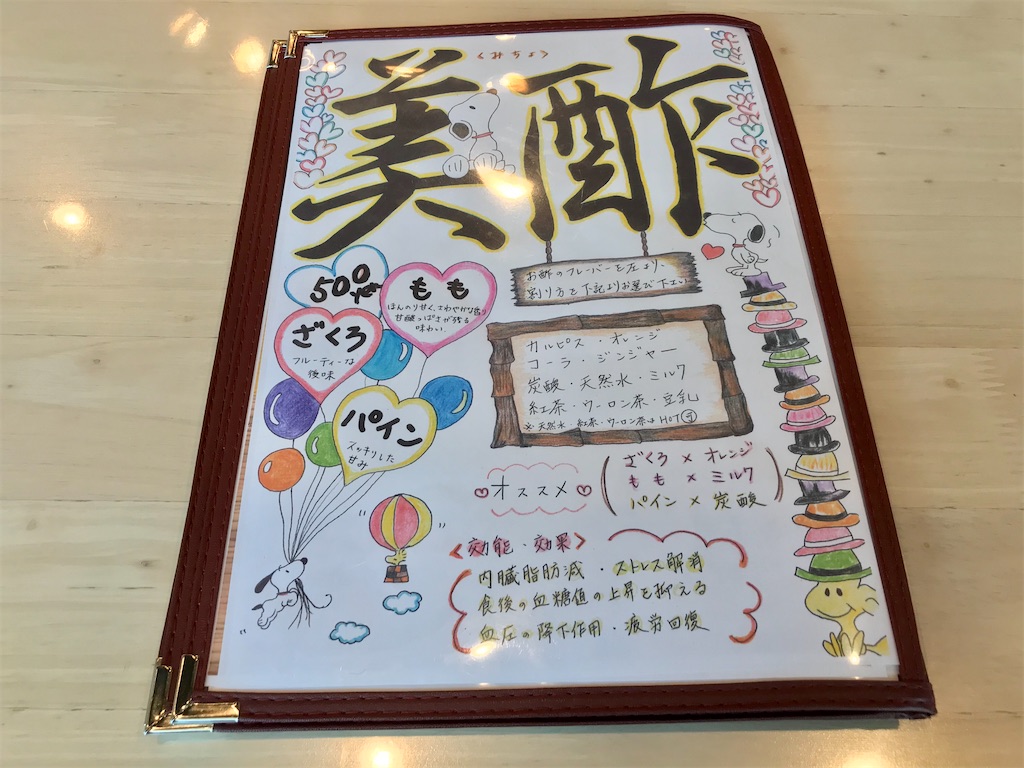 <みちょ>
美酢
お酢のフレーバーを左より、
割り方を下記よりお選び下さい
500yen
もも
ほんのり甘く、さわやかな香り
甘酸っぱさが残る
味わい
ざくろ
フルーティーな
後味
パイン
スッキリした
甘み
カルピス・オレンジ
コーラ・ジンジャー
炭酸・天然水・ミルク
紅茶・ウーロン茶・豆乳
※天然水・紅茶・ウーロン茶はHOT可
オススメ
ざくろ×オレンジ
もも×ミルク
パイン×炭酸
<効能・効果>
内臓脂肪減・ストレス解消
食後の血糖値の上昇を抑える
血圧の降下作用・疲労回復